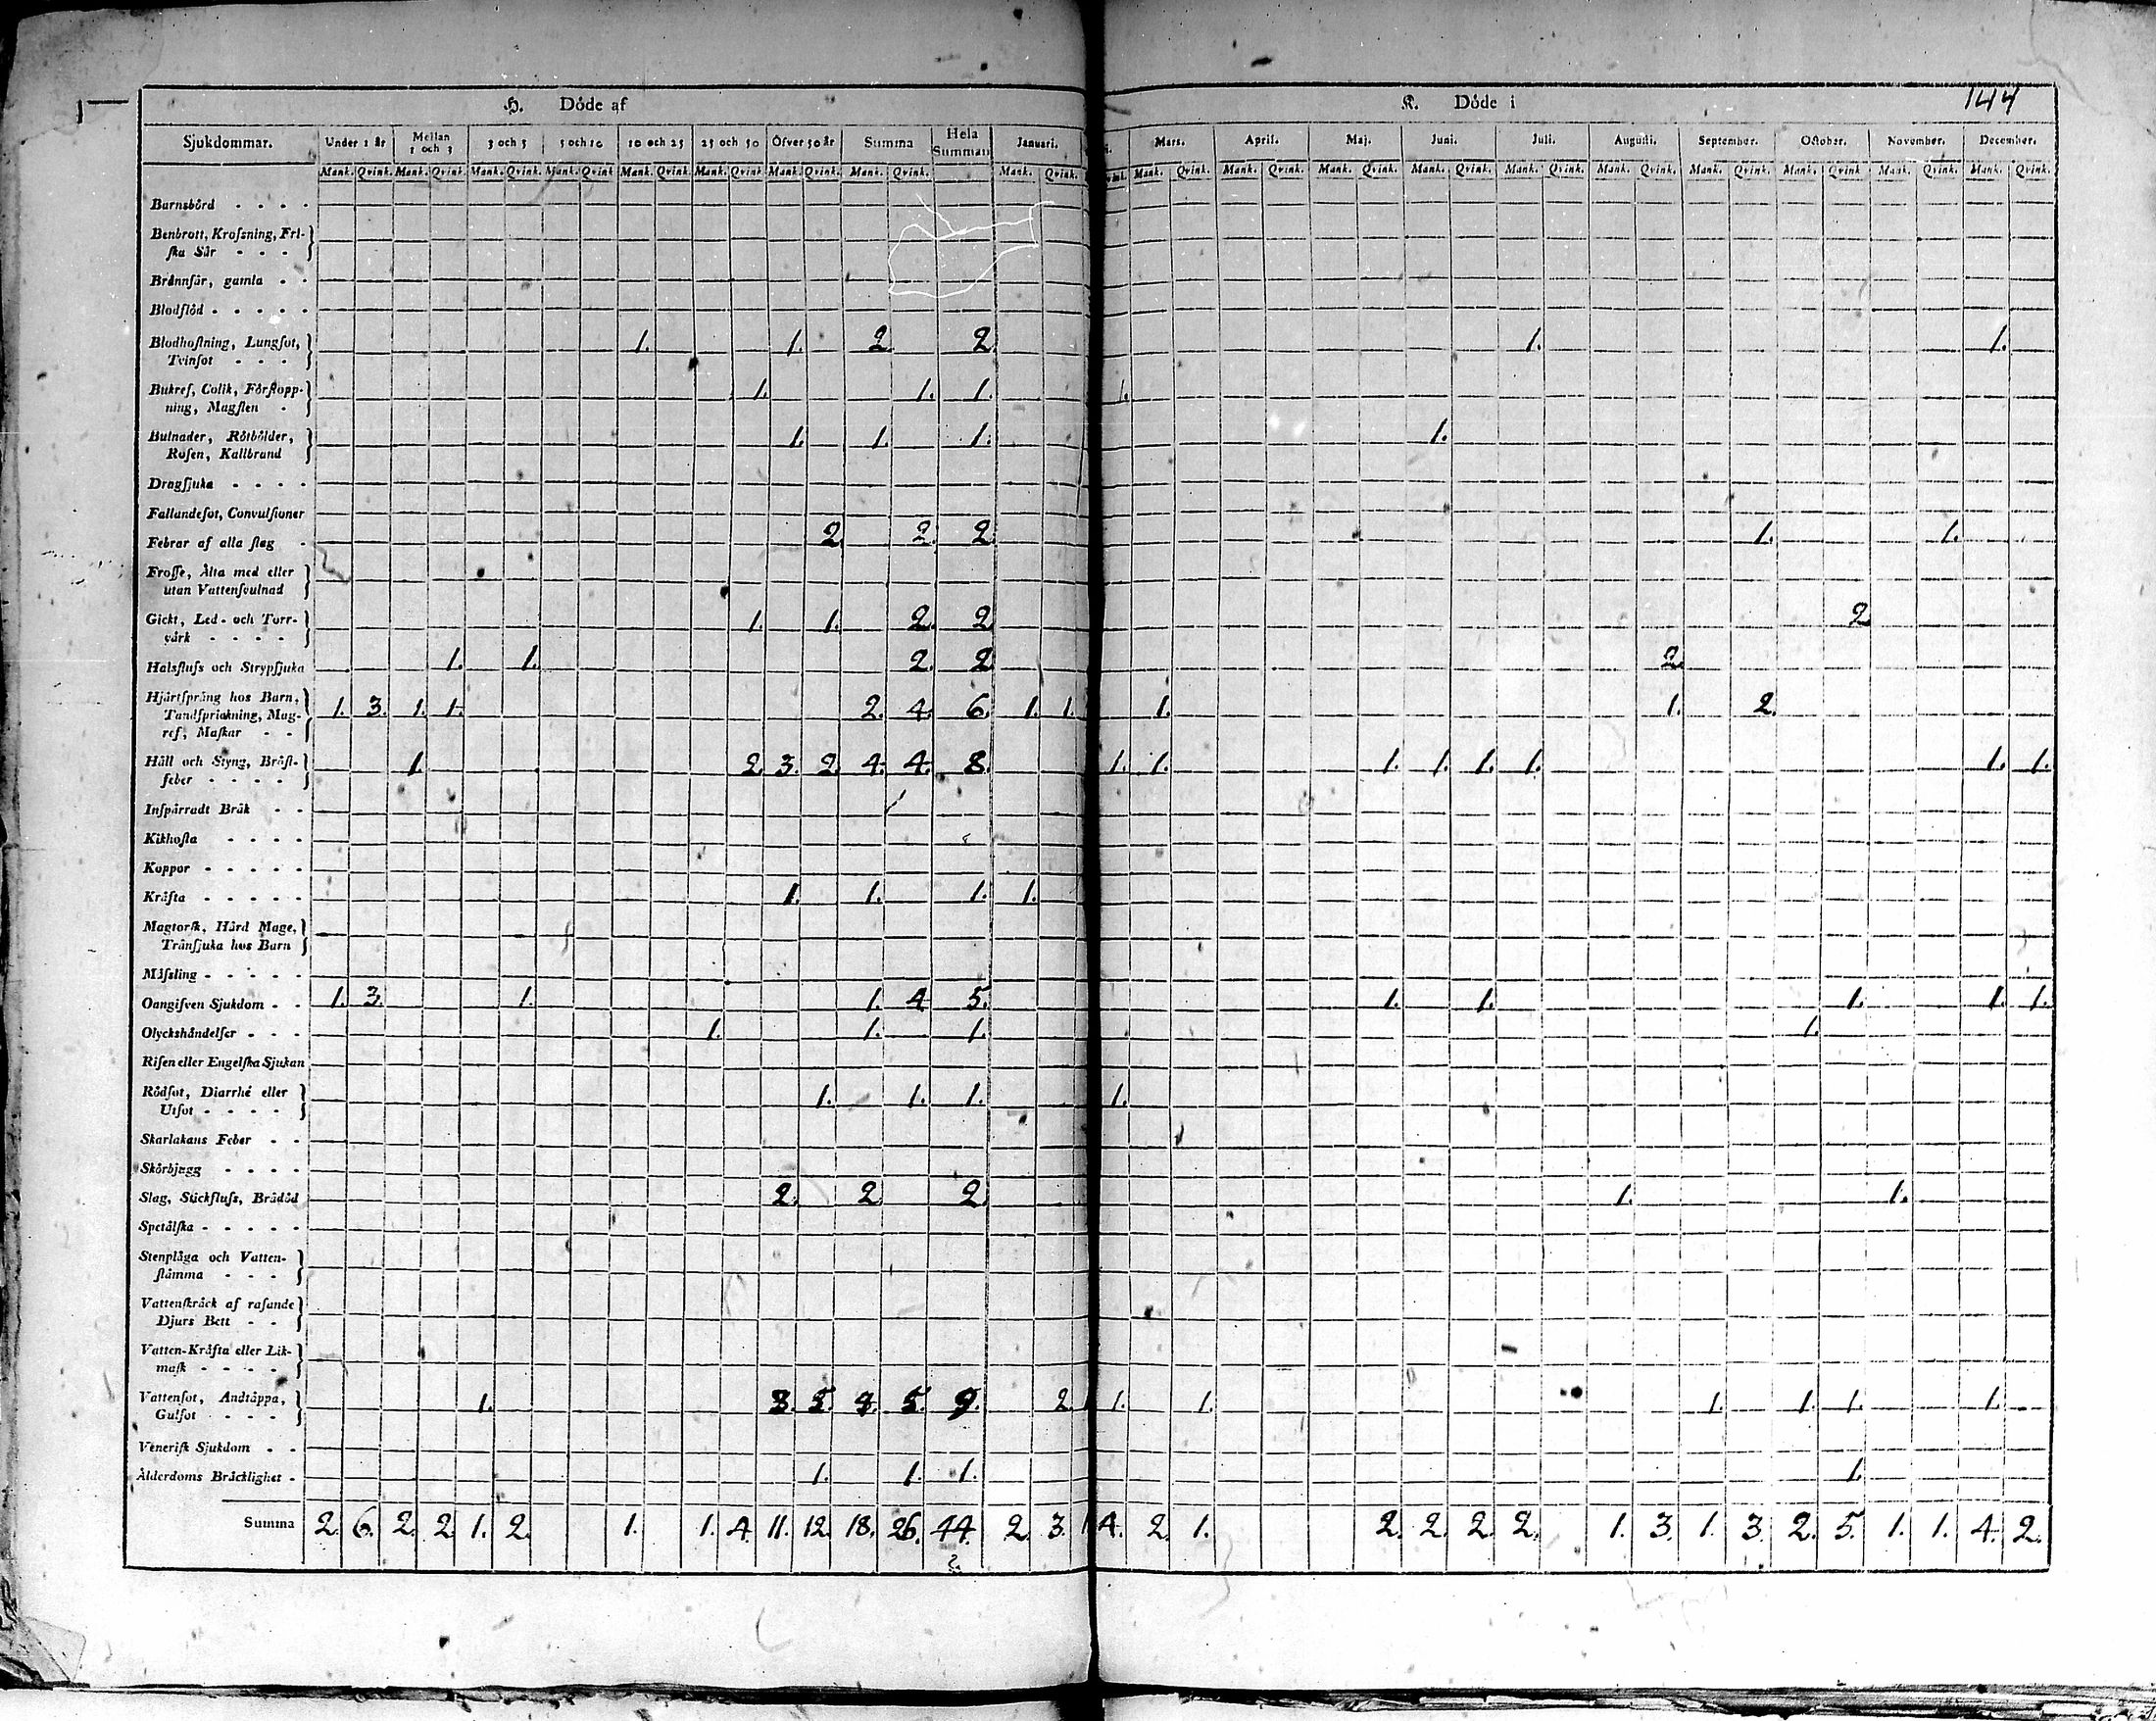 144
H. Döde af K. Döde i
Sjukdommar. Under 1 år Mellan 1 och 3 3 och 5 5 och 10 10 och 25 25 och 50 Öfver 50 år Summa Hela Summan Januari. Mars. April. Maj. Juni. Juli. Augusti. September. October. November. December.
Mank. Qvink. Mank. Qvink. Mank. Qvink. Mank. Qvink. Mank. Qvink. Mank. Qvink. Mank. Qvink. Mank. Qvink. Mank. Qvink. Mank. Qvink. Mank. Qvink. Mank. Qvink. Mank. Qvink. Mank. Qvink. Mank. Qvink. Mank. Qvink. Mank. Qvink. Mank. Qvink. Mank. Qvink.
Barnsbörd
Benbrott, Krossning, Fri-
ska Sår
Brännsår, gamla
Blodflöd
Blodhostning, Lungsot, 1. 1. 2. 2. 1. 1.
Tvinsot
Bukref, Colik, Förstopp- 1. 1. 1. 1.
ning, Magsten
Bulnader, Rötbölder, 1. 1. 1. 1.
Rosen, Kallbrand
Dragsjuka
Fallandesot, Convulsioner
Febrar af alla slag 2. 2. 2. 1. 1.
Frosse, Älta med eller
utan Vattensvulnad
Gickt, Led- och Torr- 1. 1. 2. 2. 2.
värk
Halsfluss och Strypsjuka 1. 1. 2. 2. 2.
Hjärtsprång hos Barn, 1. 3. 1. 1. 2. 4. 6. 1. 1. 1. 1. 2.
Tandsprickning, Mag-
ref, Maskar
Håll och Styng, Bröst- 1. 2. 3. 2. 4. 4. 8. 1. 1. 1. 1. 1. 1. 1. 1.
feber
Inspärradt Bråk
Kikhosta
Koppor
Kräfta 1. 1. 1. 1.
Magtorsk, Hård Mage,
Trånsjuka hos Barn
Mässling
Oangifven Sjukdom 1. 3. 1. 1. 4. 5. 1. 1. 1. 1. 1.
Olyckshändelser 1. 1. 1. 1.
Risen eller Engelska Sjukan
Rödsot, Diarrhé eller 1. 1. 1. 1.
Utsot
Skarlakans Feber
Skörbjugg
Slag, Stickfluss, Brådöd 2. 2. 2. 1. 1.
Spetälska
Stenplåga och Vatten-
stämma
Vattenskräck af rasande
Djurs Bett
Vatten-Kräfta eller Lik-
mask
Vattensot, Andtäppa, 1. 3. 5. 4. 5. 9. 2. 1. 1. 1. 1. 1. 1.
Gulsot
Venerisk Sjukdom
Ålderdoms Bräcklighet 1. 1. 1. 1.
Summa 2. 6. 2. 2. 1. 2. 1. 1. 4. 11. 12. 18. 26. 44. 2. 3. 4. 2. 1. 2. 2. 2. 2. 1. 3. 1. 3. 2. 5. 1. 1. 4. 2.